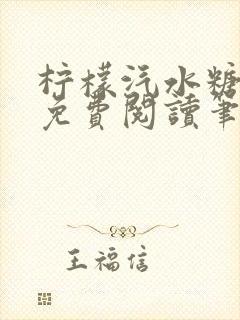 柠檬汽水糖
免費閱讀筆
王福信